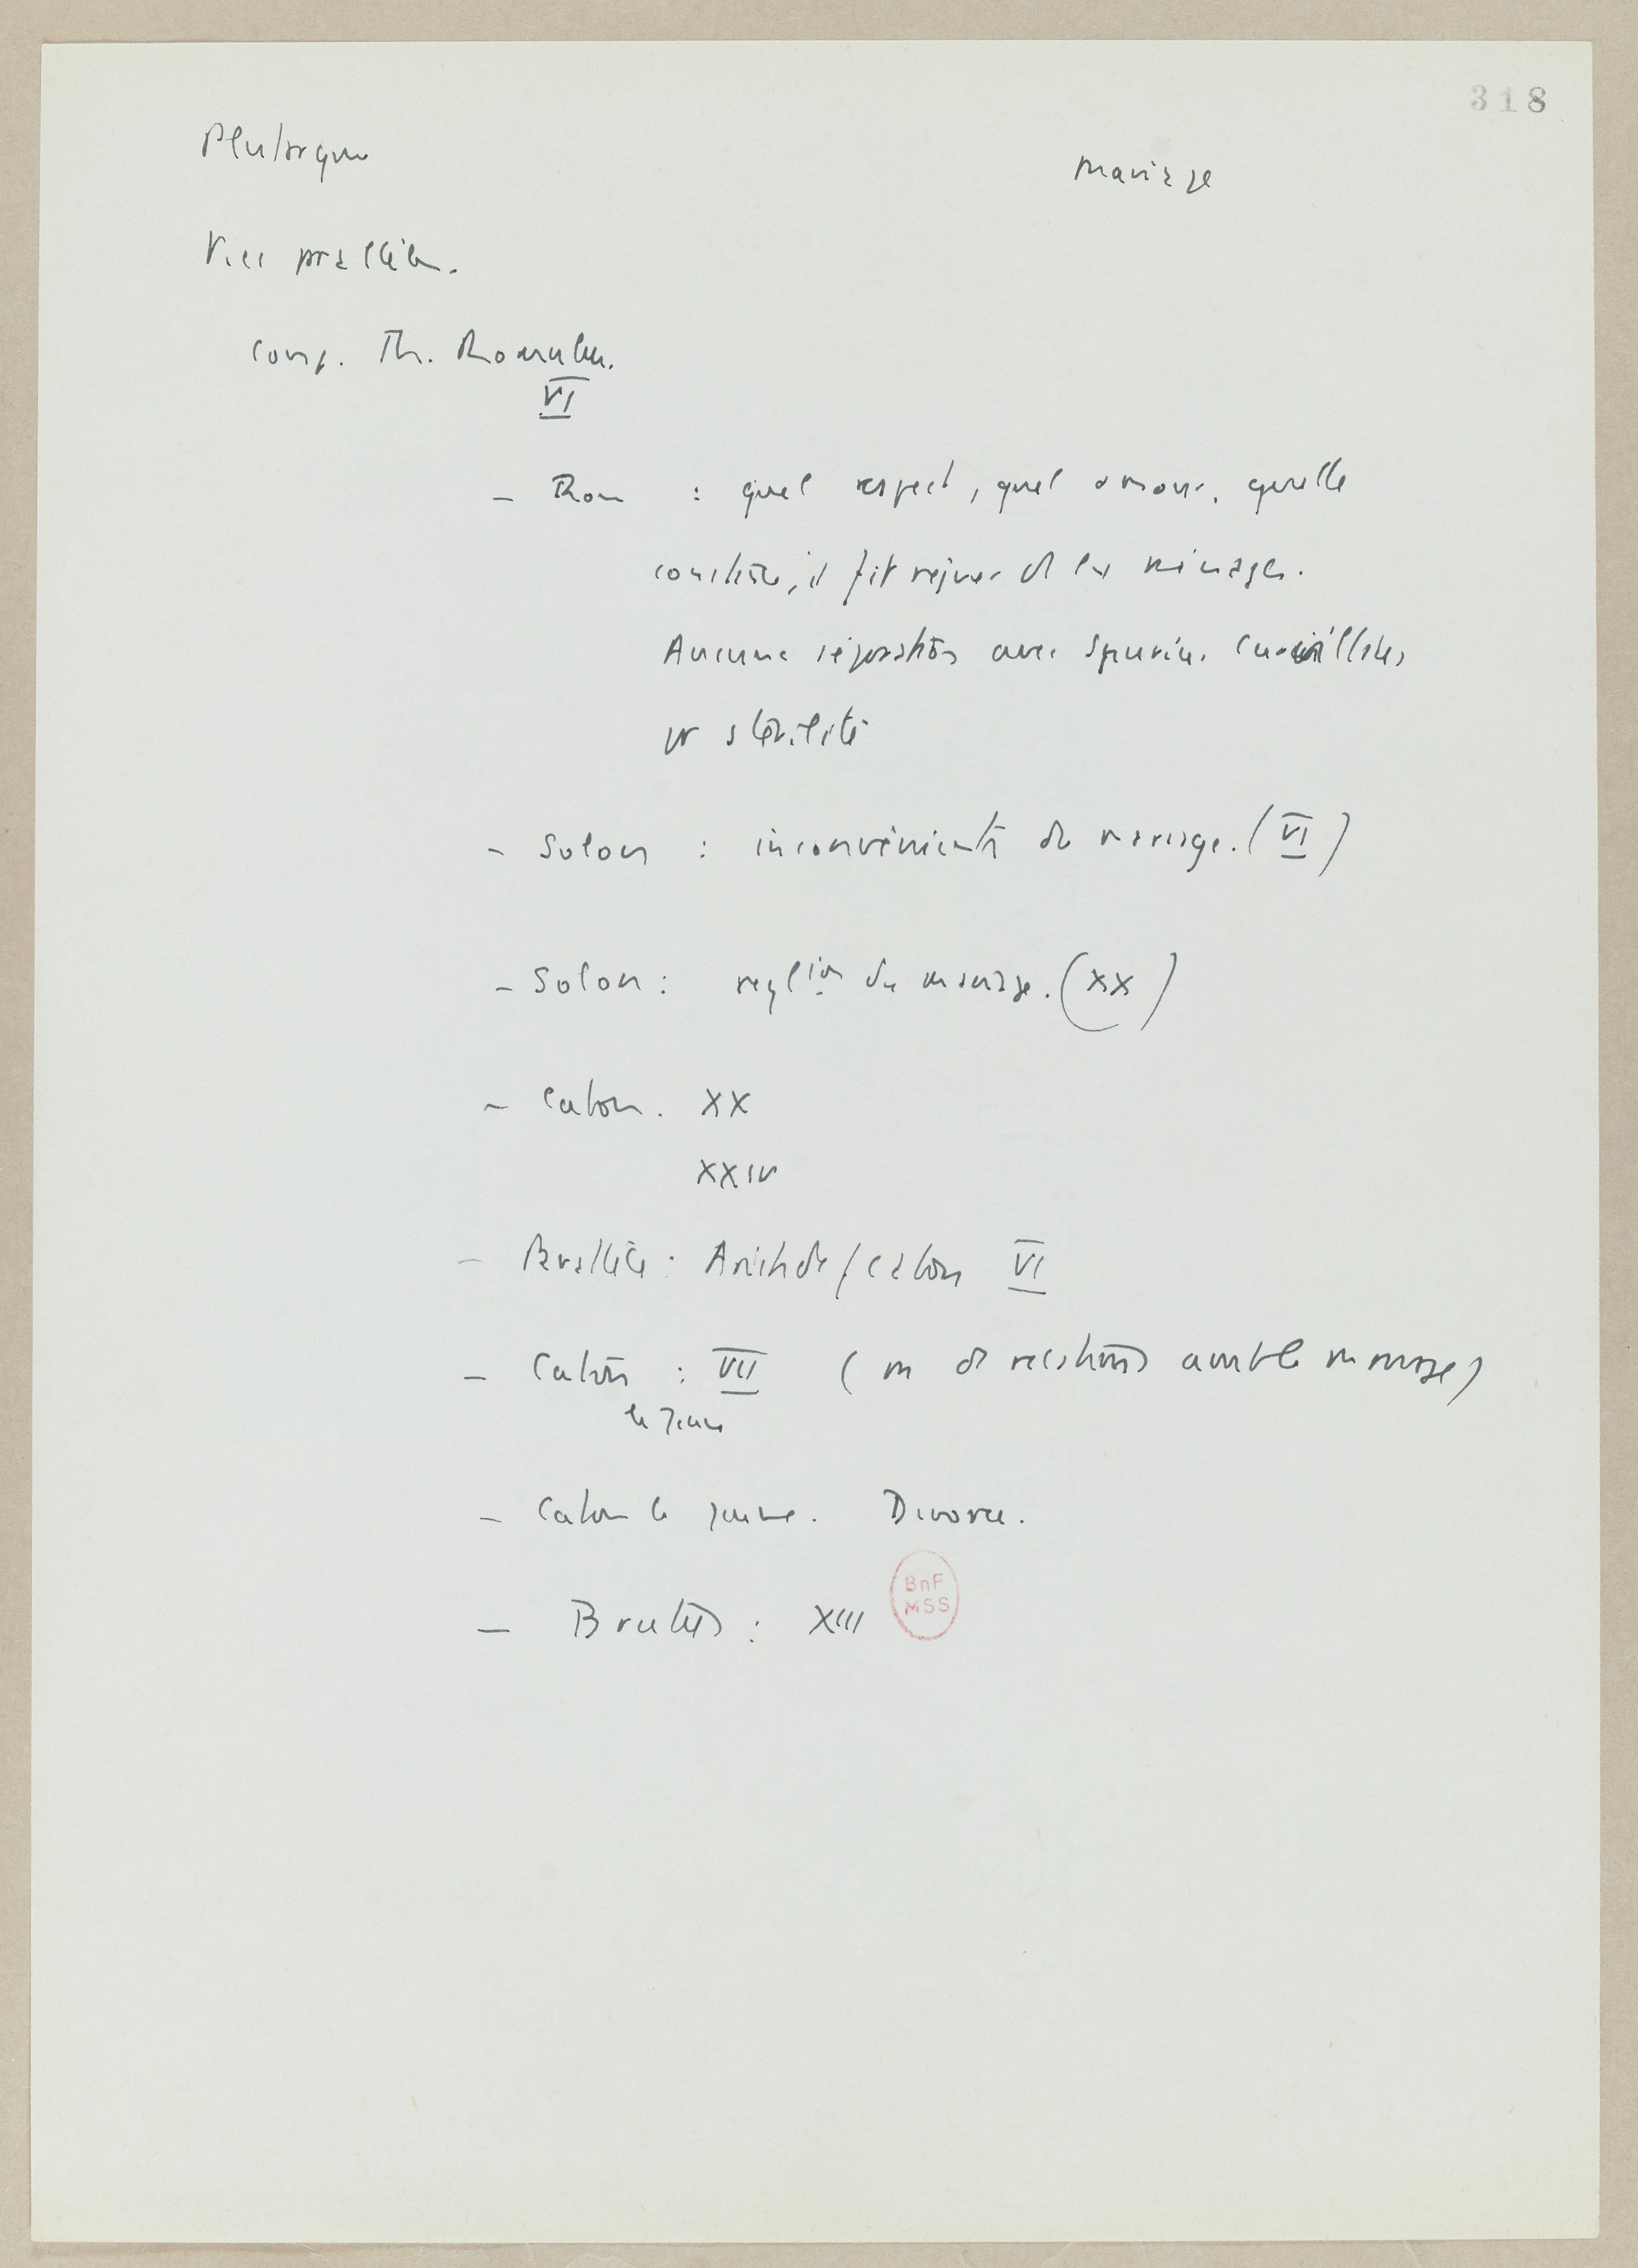 318
Plutarque
Mariage
Vies parallèles.
Comp. Th. Romulus.
VI
– Rom : quel respect, quel amour, quelle
constance, il fit régner ds les ménages.
Aucune séparation avec Spurius Carvilius,
pr stérilité
– Solon : inconvénients du mariage. (VI)
– Solon : regl.ion du mariage. (XX)
– Caton. XX
XXIV
– Parallèle : Aristide / Caton VI
– Caton : VII ( de relations avant le mariage)
le Jeune
– Caton le jeune. Divorce.
– Brutus : XIII
BnF
MSS